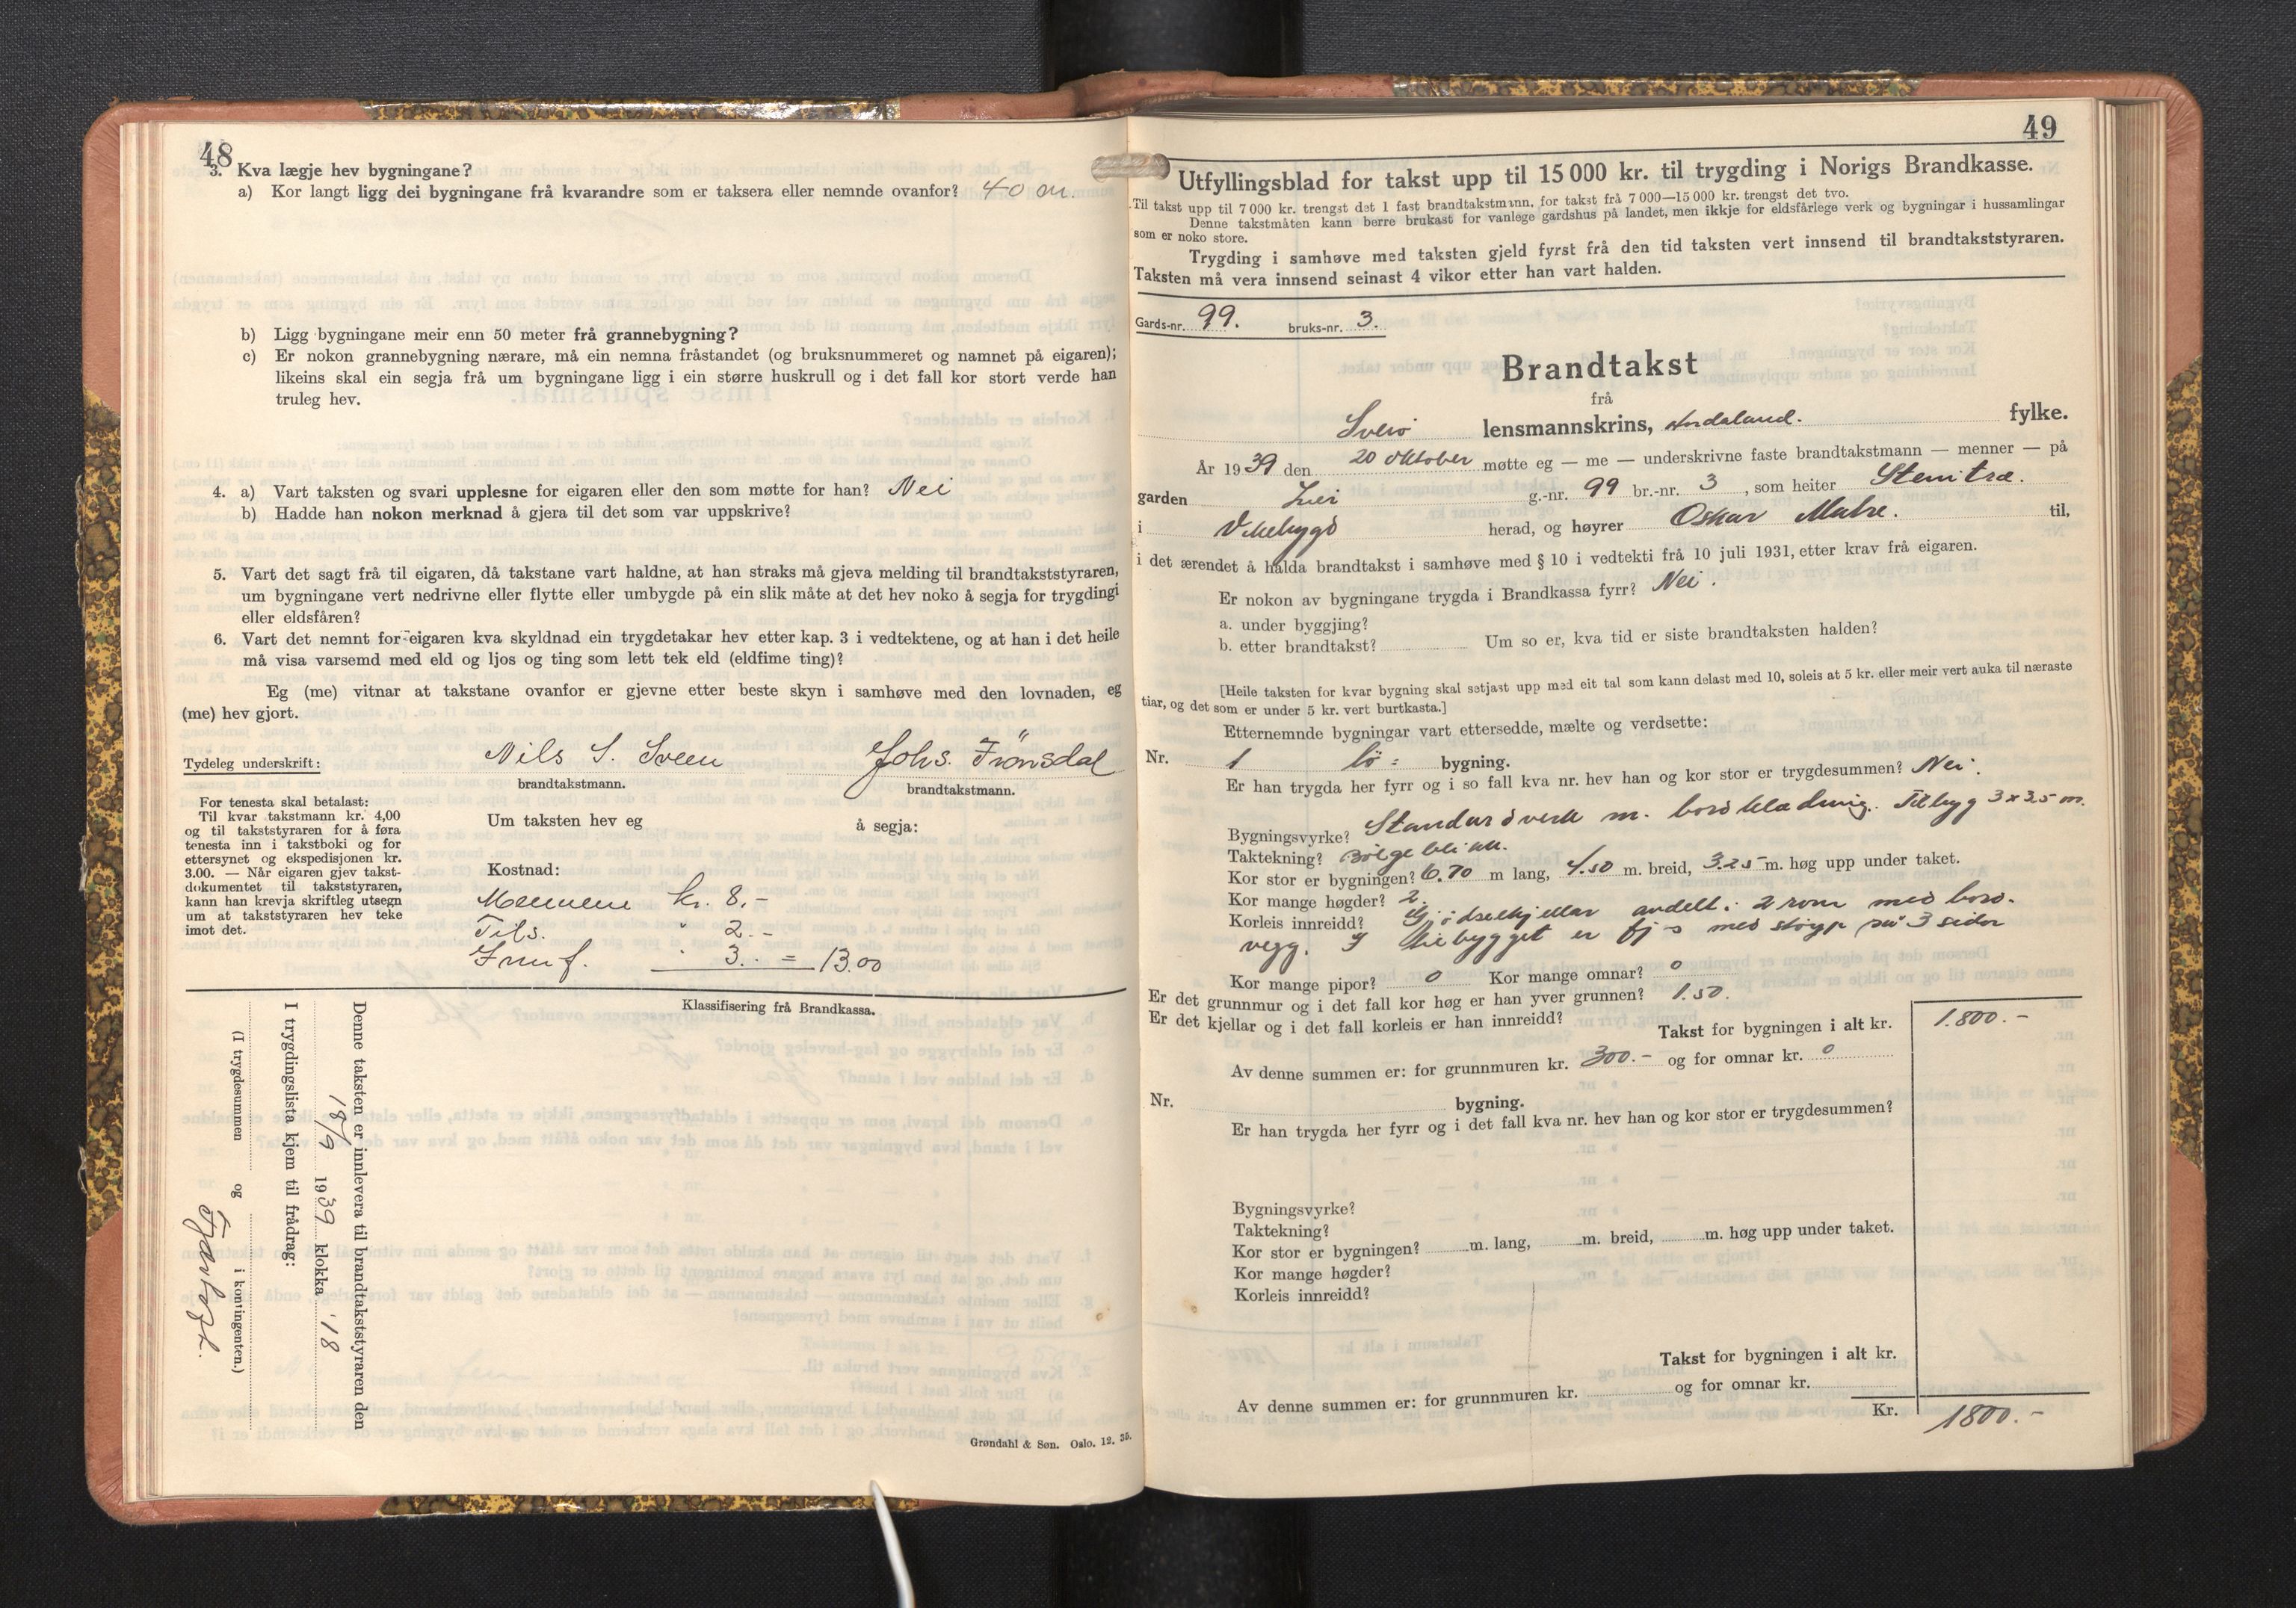 48
3. Kva lægje hev bygningane?
a) Kor langt ligg dei bygningane frå kvarandre som er taksera eller nemnde ovanfor? 40 m.
b) Ligg bygningane meir enn 50 meter frå grannebygning?
c) Er nokon grannebygning nærare, må ein nemna fråstandet (og bruksnummeret og namnet på eigaren);
likeins skal ein segja frå um bygningane ligg i ein større huskrull og i det fall kor stort verde han
truleg hev.
4. a) Vart taksten og svari upplesne for eigaren eller den som møtte for han? Nei
b) Hadde han nokon merknad å gjera til det som var uppskrive?
5. Vart det sagt frå til eigaren, då takstane vart haldne, at han straks må gjeva melding til brandtakststyraren,
um bygningane vert nedrivne eller flytte eller umbygde på ein slik måte at det hev noko å segja for trygdingi
eller eldsfåren?
6. Vart det nemnt for eigaren kva skyldnad ein trygdetakar hev etter kap. 3 i vedtektene, og at han i det heile
må visa varsemd med eld og ljos og ting som lett tek eld (eldfime ting)?
Eg (me) vitnar at takstane ovanfor er gjevne etter beste skyn i samhøve med den lovnaden, eg
(me) hev gjort.
Tydeleg underskrift: Nils S. Sveen Johs. Frönsdal
brandtakstmann. brandtakstmann.
For tenesta skal betalast:
Til kvar takstmann kr. 4,00
og til takststyraren for å føra
tenesta inn i takstboki og for
ettersynet og ekspedisjonen kr.
3.00. — Når eigaren gjev takst-
dokumentet til takststyraren,
kann han krevja skriftleg utsegn
um at takststyraren hev teke
imot det.
Um taksten hev eg å segja:
Kostnad:
Mennene kr. 8.-
Tils. " 2.-
Innf. " 3.- = 13.00
Klassifisering frå Brandkassa.
Denne taksten er innlevera til brandtakststyraren den
18/9 1939 klokka 18
I trygdingslista kjem til frådrag:
(I trygdesummen og i kontingenten.)
Grøndahl & Søn. Oslo. 12. 35.
49
Utfyllingsblad for takst upp til 15 000 kr. til trygding i Norigs Brandkasse.
Til takst upp til 7 000 kr. trengst det 1 fast brandtakstmann, for takst frå 7 000—15 000 kr. trengst det tvo.
Denne takstmåten kann berre brukast for vanlege gardshus på landet, men ikkje for eldsfårlege verk og bygningar i hussamlingar
som er noko store.
Trygding i samhøve med taksten gjeld fyrst frå den tid taksten vert innsend til brandtakststyraren.
Taksten må vera innsend seinast 4 vikor etter han vart halden.
Gards-nr. 99. bruks-nr. 3.
Brandtakst
frå
Sveio lensmannskrins, Hordaland. fylke.
År 1939 den 20 oktober møtte eg — me — underskrivne faste brandtakstmann — menner — på
garden g.-nr. 99 br.-nr. 3, som heiter
i Vikebygd herad, og høyrer Oskar Matre. til,
i det ærendet å halda brandtakst i samhøve med § 10 i vedtekti frå 10 juli 1931, etter krav frå eigaren.
Er nokon av bygningane trygda i Brandkassa fyrr? Nei.
a. under byggjing?
b. etter brandtakst? Um so er, kva tid er siste brandtaksten halden?
[Heile taksten for kvar bygning skal setjast upp med eit tal som kann delast med 10, soleis at 5 kr. eller meir vert auka til næraste
tiar, og det som er under 5 kr. vert burtkasta.]
Etternemnde bygningar vart ettersedde, mælte og verdsette:
Nr. 1 lö- bygning.
Er han trygda her fyrr og i so fall kva nr. hev han og kor stor er trygdesummen? Nei.
Bygningsvyrke? Standardverk m. bordkledning. Tilbyg 3 x 3,5 m.
Taktekning? Bölgeblikk.
Kor stor er bygningen? 6.70 m lang, 4.50 m. breid, 3.25 m. høg upp under taket.
Kor mange høgder? 2.
Korleis innreidd? Gjödselkjellar avdelt i 2 rom med bord-
vegg. I tilbygget er fjos med støyp på 3 sidor
Kor mange pipor? 0 Kor mange omnar? 0
Er det grunnmur og i det fall kor høg er han yver grunnen? 1.50.
Er det kjellar og i det fall korleis er han innreidd?
Takst for bygningen i alt kr. 1.800.-
Av denne summen er: for grunnmuren kr. 300.- og for omnar kr. 0
Nr. bygning.
Er han trygda her fyrr og i det fall kva nr. hev han og kor stor er trygdesummen?
Bygningsvyrke?
Taktekning?
Kor stor er bygningen? m. lang, m. breid, m. høg upp under taket.
Kor mange høgder?
Korleis innreidd?
Takst for bygningen i alt kr.
Av denne summen er: for grunnmuren kr. og for omnar kr.
Kr. 1800.-